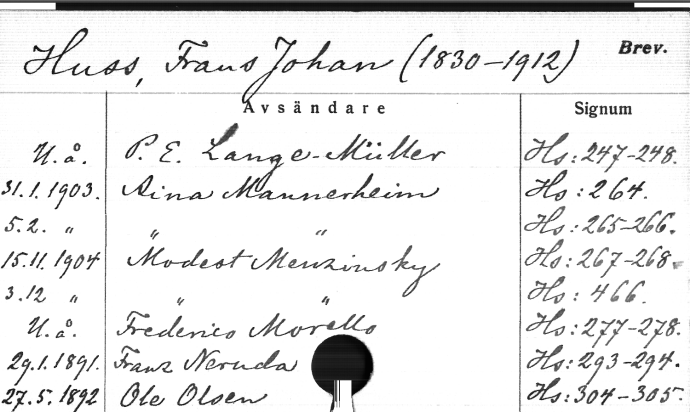 Huss, Frans Johan (1830-1912) Brev.
Avsändare Signum
U.å. P. E. Lange-Müller Hs: 247-248.
31.1.1903. Aina Mannerheim Hs: 264.
5.2. " " " Hs: 265-266.
15.11.1904 Modest Menzinsky Hs: 267-268.
3.12 " " " Hs: 466.
U.å. Frederico Morello Hs: 277-278.
29.1.1891. Franz Neruda Hs: 293-294.
27.5.1892 Ole Olsen Hs: 304-305.